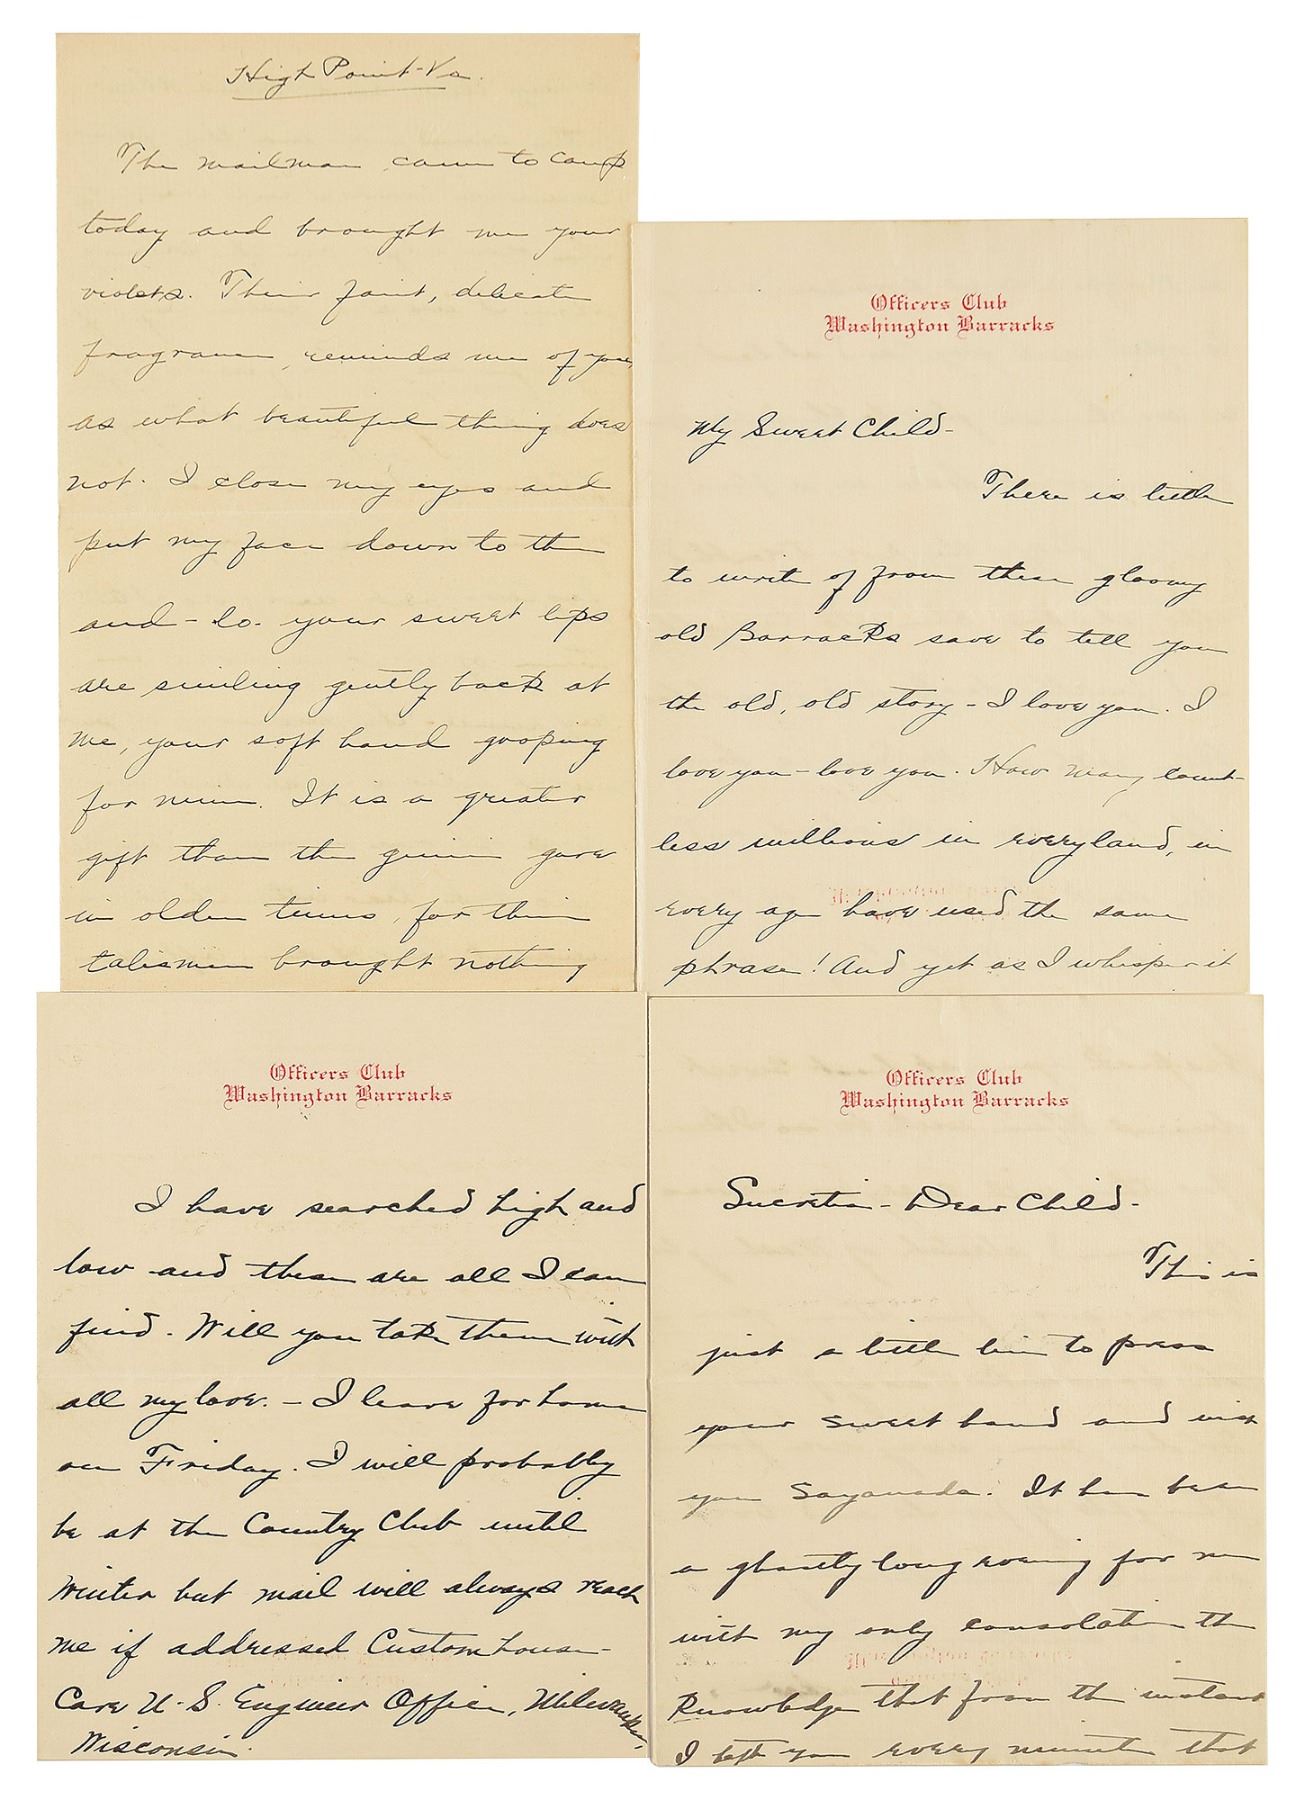 High Point - Va.
The mailman came to camp
today and brought me your
violets. Their faint, delicate
fragrance reminds me of you,
as what beautiful thing does
not. I close my eyes and
put my face down to them
and - lo - your sweet lips
are smiling gently back at
me, your soft hand groping
for mine. It is a greater
gift than the genii gave
in olden times, for their
talismen brought nothing
Officers Club
Washington Barracks
My Sweet Child -
There is little
to write of from these gloomy
old Barracks save to tell you
the old, old story - I love you. I
love you - love you. How many count-
less millions in every land, in
every age have used the same
phrase! And yet as I whisper it
Officers Club
Washington Barracks
I have searched high and
low and these are all I can
find. Will you take them with
all my love. - I leave for home
on Friday. I will probably
be at the Country Club until
Winter but mail will always reach
me if addressed Customhouse -
Care U. S. Engineer Office, Milwaukee,
Wisconsin.
Officers Club
Washington Barracks
Dear Child -
This is
just a little line to press
your sweet hand and wish
you It has been
a ghastly long evening for me
with my only consolation the
Knowledge that from the instant
I left you every minute that